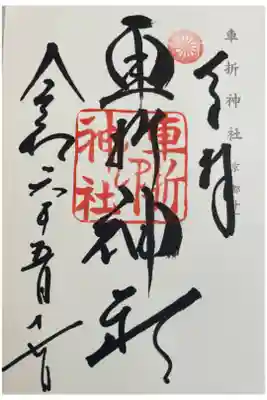 車折神社 京都
奉拝
車折神社
車折神社
令和六年五月十七日